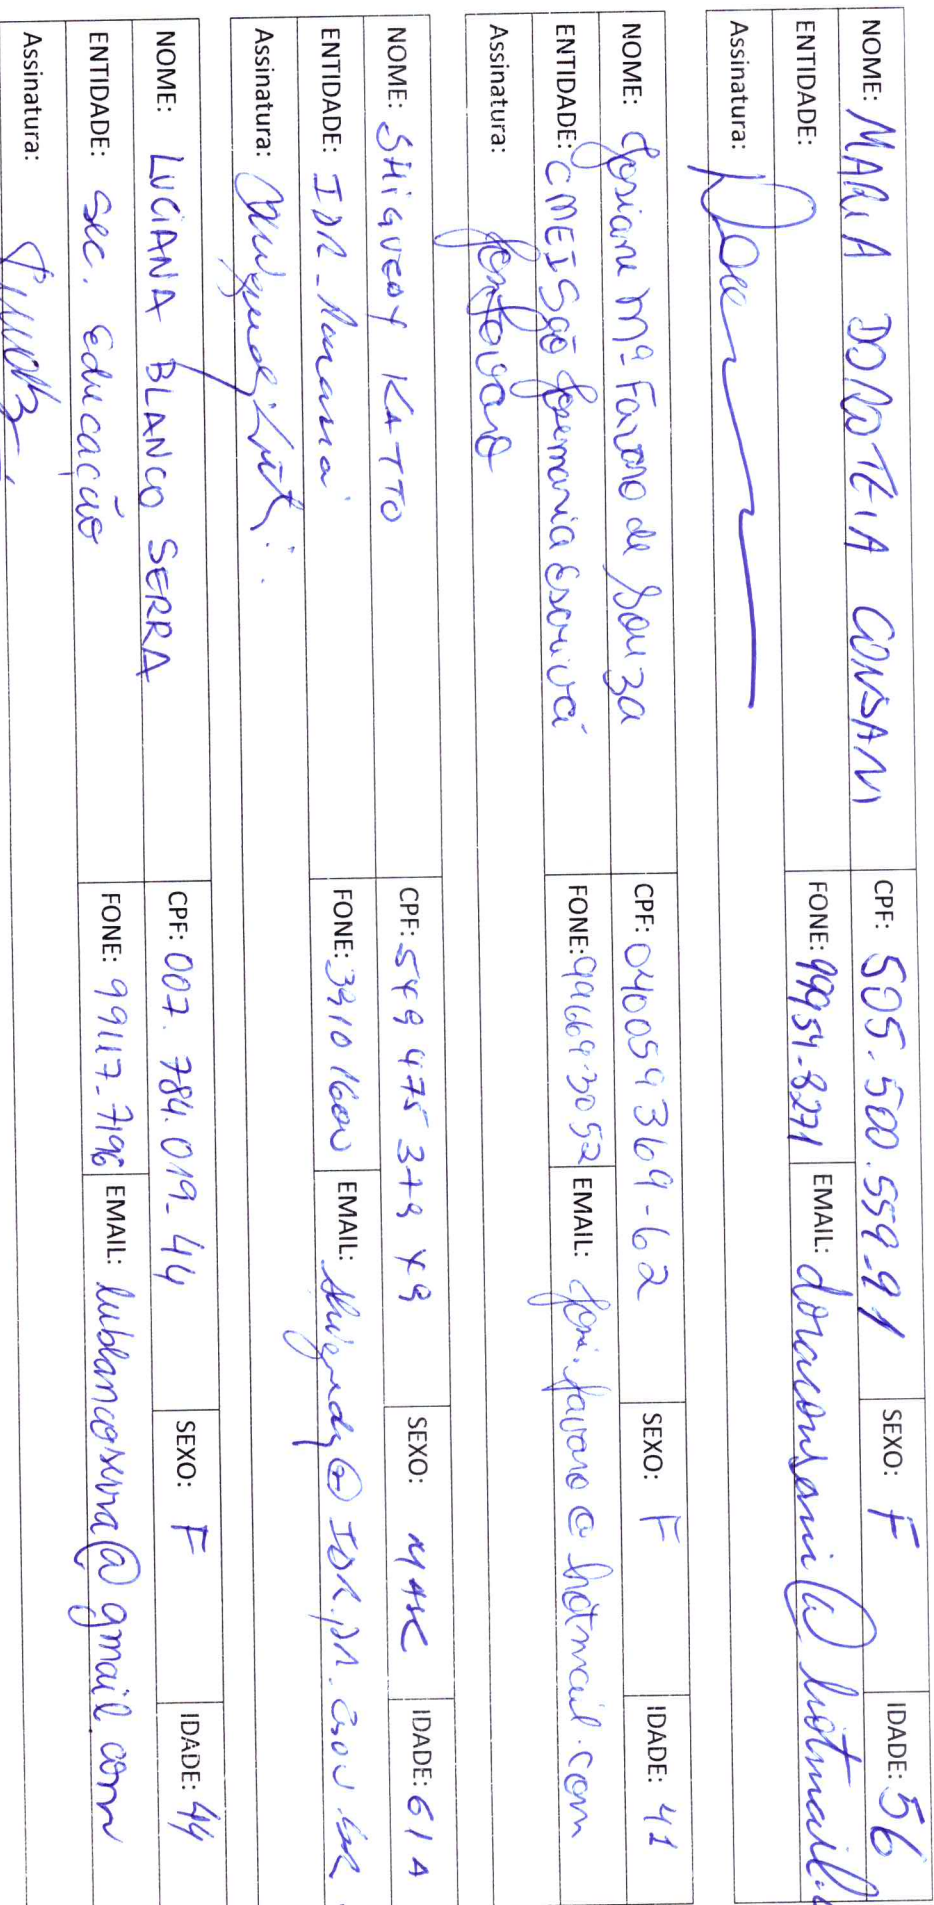 NOME: MARIA DOROTEIA CONSANI CPF: 505.500.559-91 SEXO: F IDADE: 56
ENTIDADE: FONE: 99954-8271 EMAIL: doraconsani@hotmail.
Assinatura:
NOME: Josiane Mª Favaro de Souza CPF: 040059369-62 SEXO: F IDADE: 41
ENTIDADE: CMEI São Josemaria Escrivá FONE: 99669-3052 EMAIL: josi.favaro@hotmail.com
Assinatura: Josifavaro
NOME: SHIGUEOY KATTO CPF: SEXO: MASC IDADE: 61 A
ENTIDADE: IDR-Paraná FONE: 3910 1600 EMAIL:
Assinatura:
NOME: LUCIANA BLANCO SERRA CPF: 007.784.019-44 SEXO: F IDADE: 44
ENTIDADE: Sec. Educação FONE: 99117-7196 EMAIL: lublancoserra@gmail.com
Assinatura: